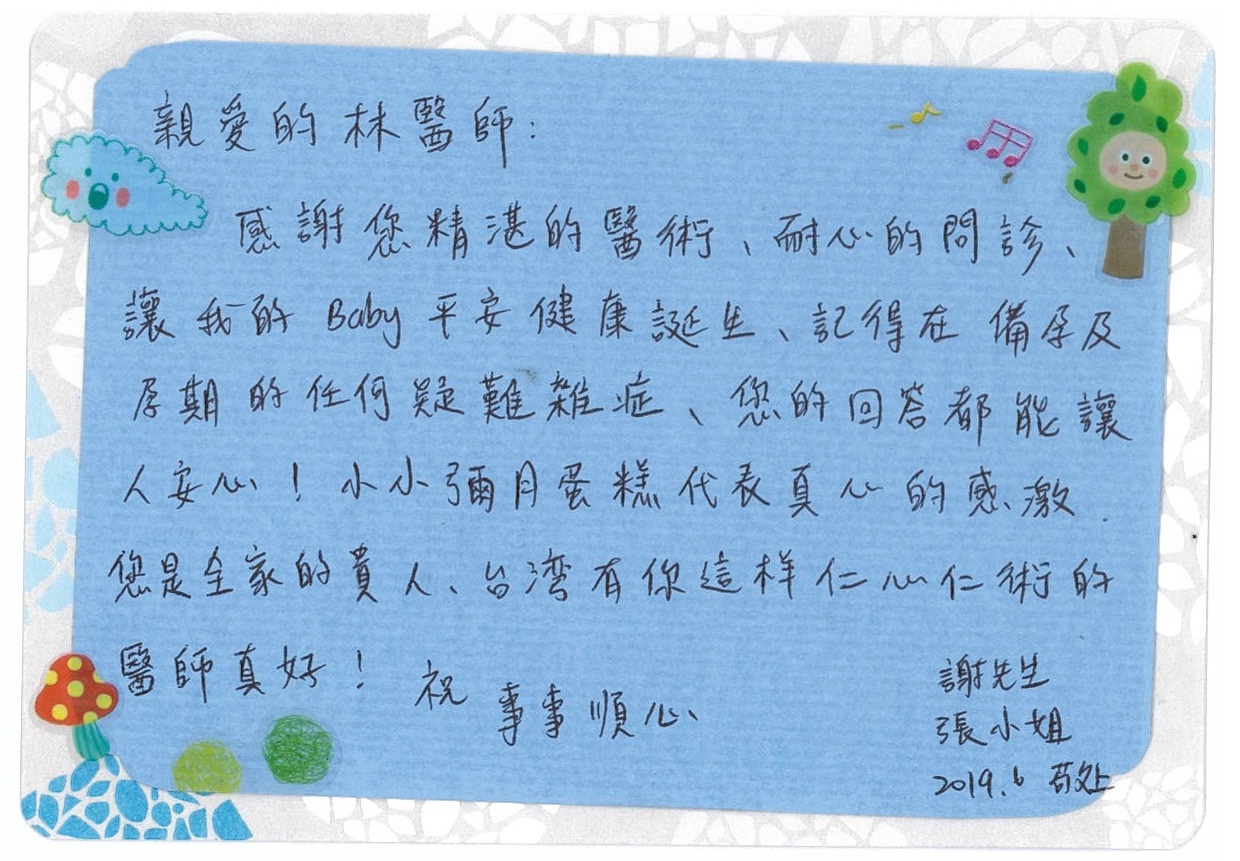 親愛的林醫師:
感謝您精湛的醫術、耐心的問診、
讓我的Baby平安健康誕生、記得在備孕及
孕期的任何疑難雜症、您的回答都能讓
人安心!小小彌月蛋糕代表真心的感激.
您是全家的貴人、台湾有你這样仁心仁術的
醫師真好! 祝 事事順心
謝先生
張小姐
2019.6 敬上